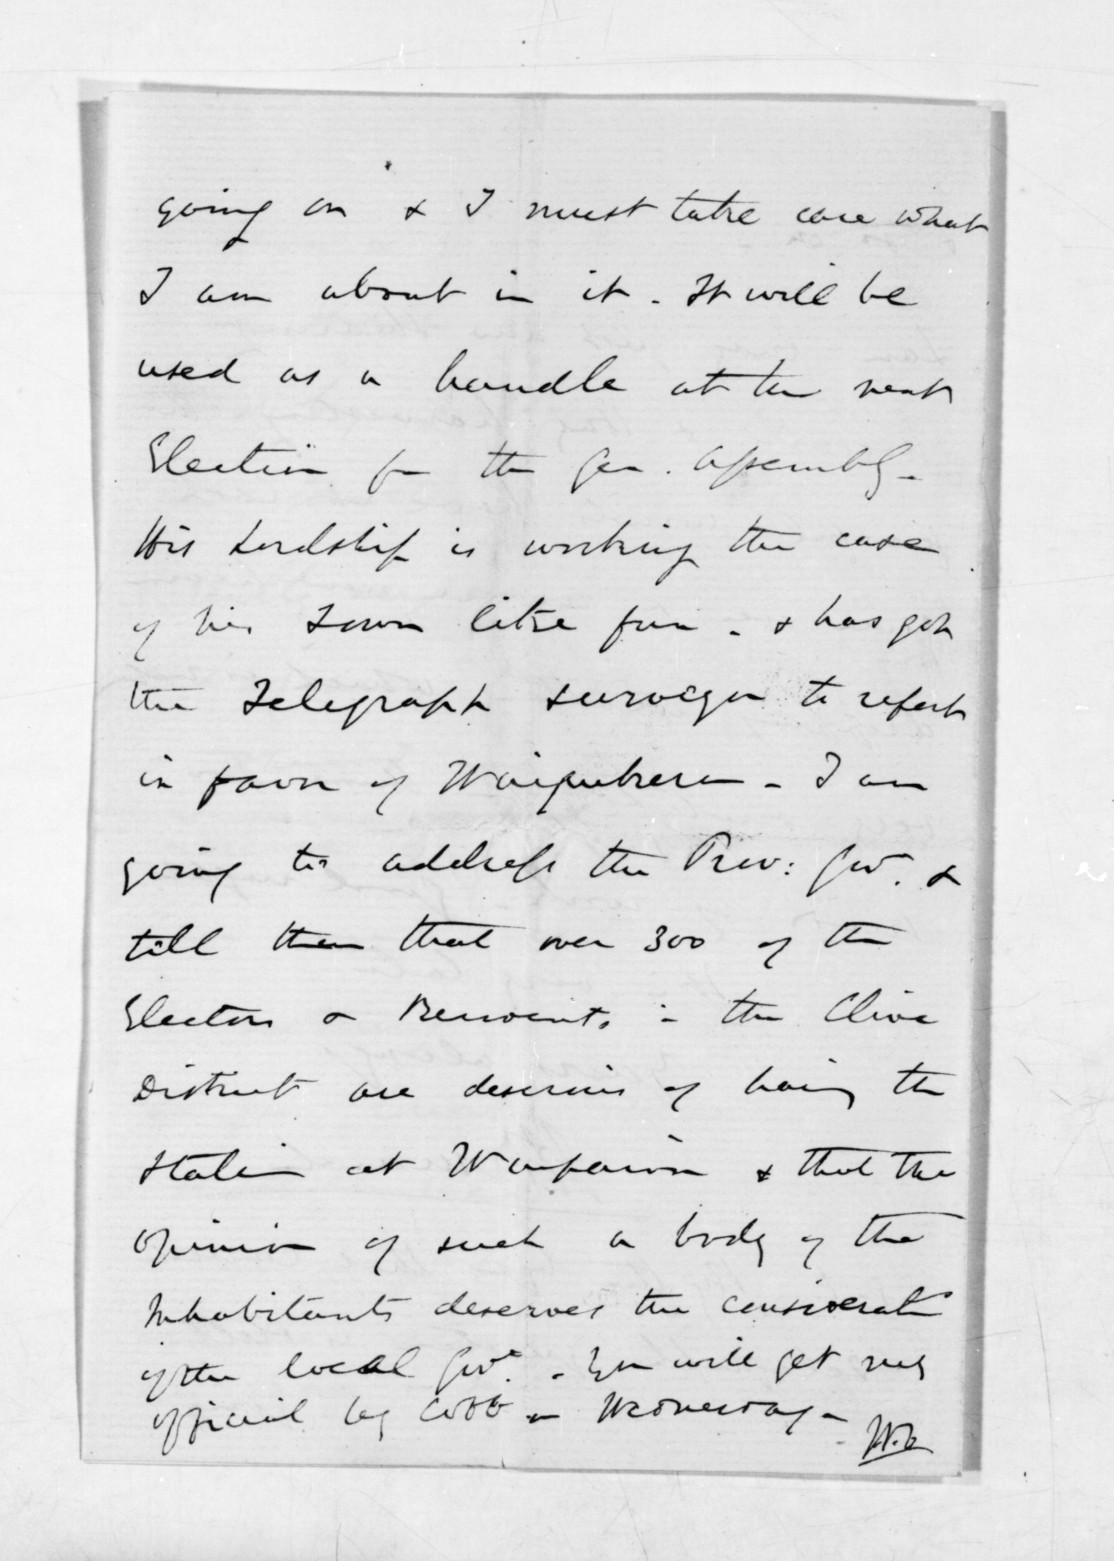 going on & I must take care what
I am about in it. It will be
used as a handle at the next
Election for the Gen. Assembly.
His Lordship is working the case
of his Town like fun. & has got
the Telegraph surveyor to report
in favor of Waipukurau - I am
going to address the Prov: Govt. &
tell them that over 300 of the
Electors & Residents in the Clive
District are desirous of having the
Station at Waipawa & that the
opinion of such a body of the
Inhabitants deserves the considerat
of the local Govt. - You will get my
official by Cobb on Wednesday -